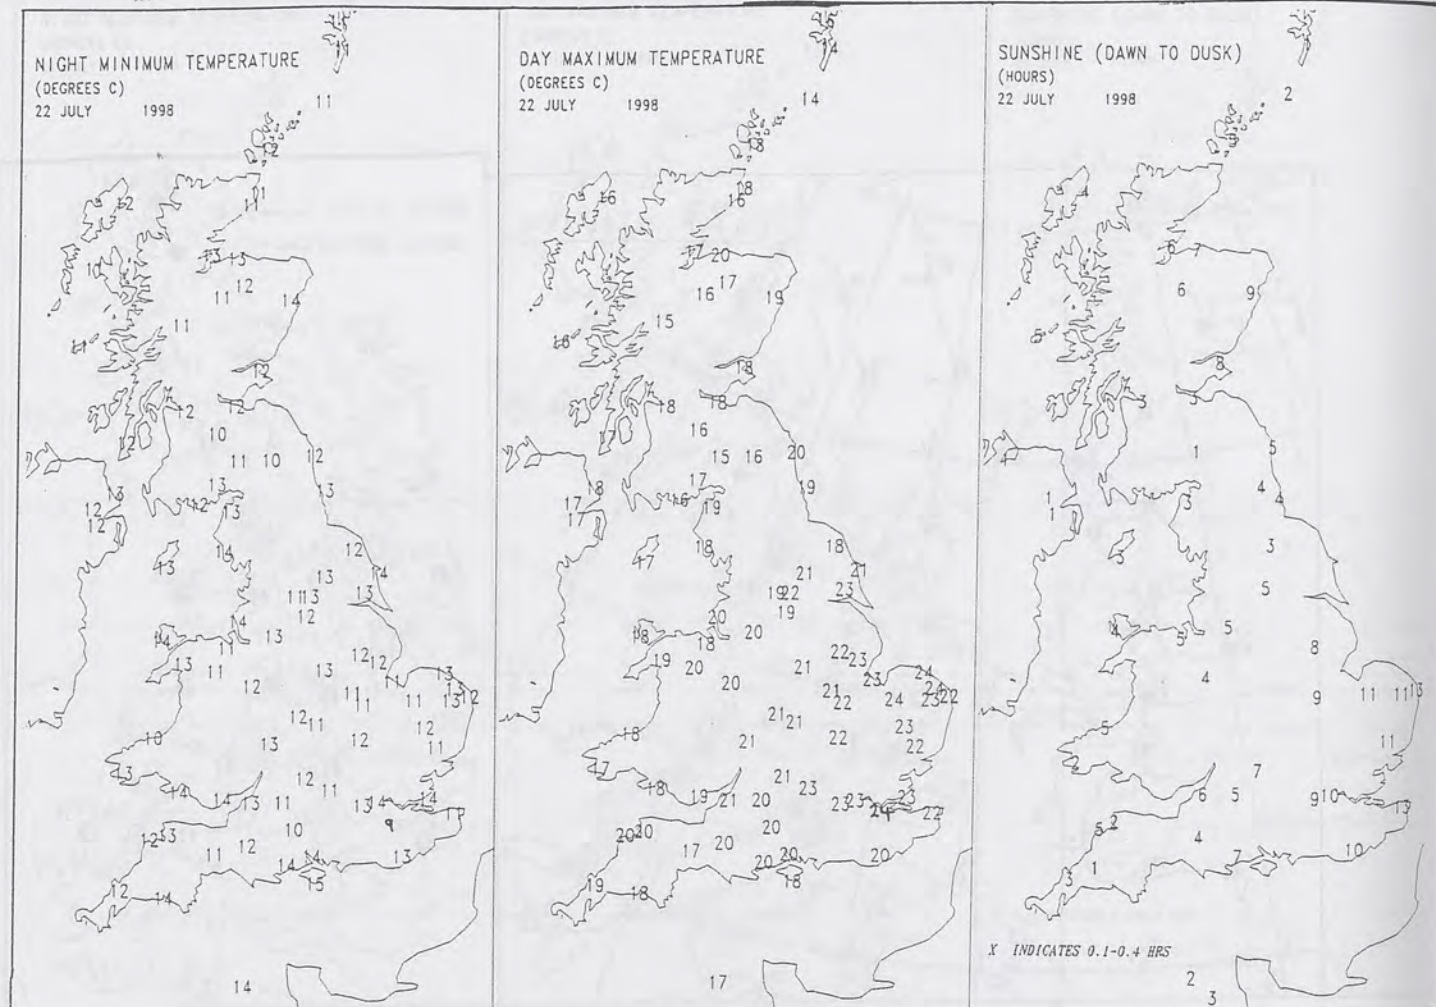 NIGHT MINIMUM TEMPERATURE
(DEGREES C)
22 JULY 1998
11
12
11
11
12
13 13
10
12
11
14
11
11
12
12
12
10
12
11 10
12
13
13
13
12
12
13
12
14
12
13
13
14
11 13
13
12
14
14
13
11
12
12
13
11
13
11
13
13
12
11
11
13
12
11
12
11
12
10
13
12
11
13
12
14
11
14
13
11
13
14
14
11
10
9
12
13
12
11
14
14
13
15
12
14
14
DAY MAXIMUM TEMPERATURE
(DEGREES C)
22 JULY 1998
14
14
18
18
16
16
17
20
17
16
19
15
16
18
18
18
16
17
15
16
20
18
17
17
16
19
19
17
18
18
17
21
21
19 22
23
19
20
20
18
18
19
20
20
22
23
21
23
24
24
21
22
24
23
22
18
21
21
22
23
22
21
17
18
19
21
23
21
20
23
23
23
24
22
20
20
20
20
17
20
20
20
18
19
18
17
SUNSHINE (DAWN TO DUSK)
(HOURS)
22 JULY 1998
2
3
4
6
7
6
9
5
8
3
3
1
5
4
4
4
3
1
1
3
3
5
4
5
5
8
4
9
11
11
13
5
11
2
7
6
5
9
10
13
5
2
4
7
10
1
3
X INDICATES 0.1-0.4 HRS
2
3